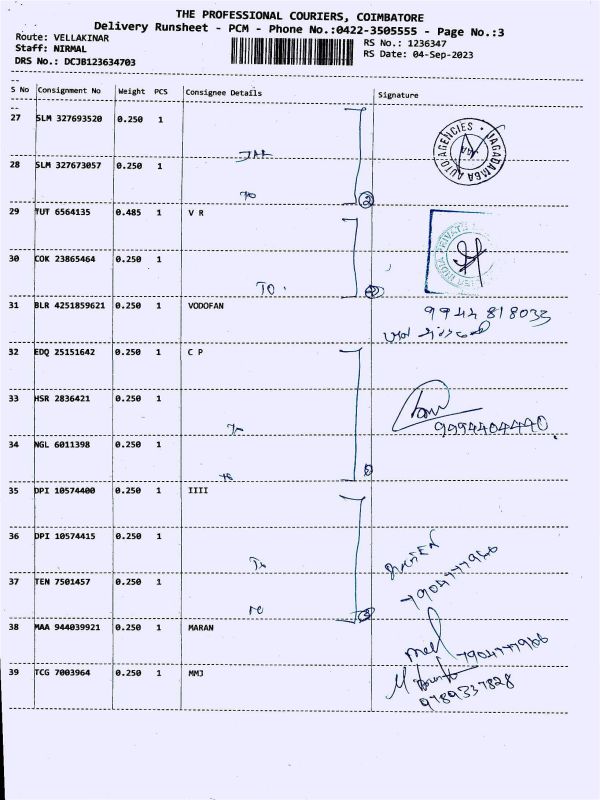 THE PROFESSIONAL COURIERS, COIMBATORE
Delivery Runsheet - PCM - Phone No.:0422-3505555 - Page No.:3
Route: VELLAKINAR
Staff: NIRMAL
DRS No.: DCJB123634703
RS No.: 1236347
RS Date: 04-Sep-2023
S No Consignment No Weight PCS Consignee Details Signature
27 SLM 327693520 0.250 1
JAGADAMBA AUTO AGENCIES
28 SLM 327673057 0.250 1
TO
2
29 TUT 6564135 0.485 1 V R
30 COK 23865464 0.250 1
TO
31 BLR 4251859621 0.250 1 VODOFAN
9944818033
32 EDQ 25151642 0.250 1 C P
33 HSR 2836421 0.250 1
9994404440
34 NGL 6011398 0.250 1
35 DPI 10574400 0.250 1 IIII
36 DPI 10574415 0.250 1
37 TEN 7501457 0.250 1
TO
3
38 MAA 944039921 0.250 1 MARAN
39 TCG 7003964 0.250 1 MMJ
9789337828